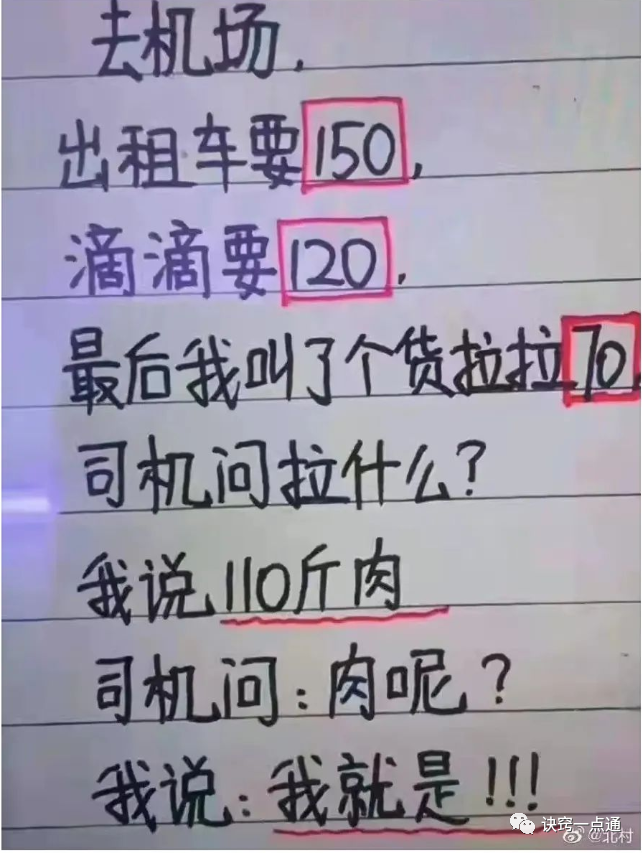 去机场.
出租车要150,
滴滴要120,
最后我叫了个货拉拉70,
司机问拉什么?
我说110斤肉
司机问:肉呢?
我说:我就是!!!
诀窍一点通
@北村